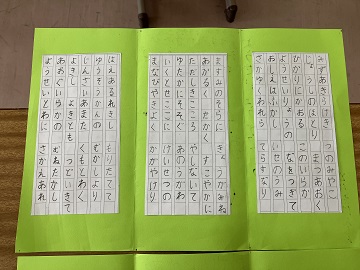 みずあきらけき つのみやこ
じょうしのほとり まつあおく
ひかりにかおる このいらか
ようせいりょうの なをつぎて
おしえはふかし いせのうみ
さかゆくわれら てらすなり
ますみのそらに きょうがみね
あかるく たかく すこやかに
ただしきこころ やしないて
ゆたかにそそぐ あのうがわ
いくとせここに けいせつの
まなびやきよく かがやけり
はえあるれきし もりたてて
ゆうぞうかんの むかしより
じんざいあまた くもとわく
よきし よきとも つどいきて
あおぐいらかの むねたかし
ようせいとわに さかえあれ